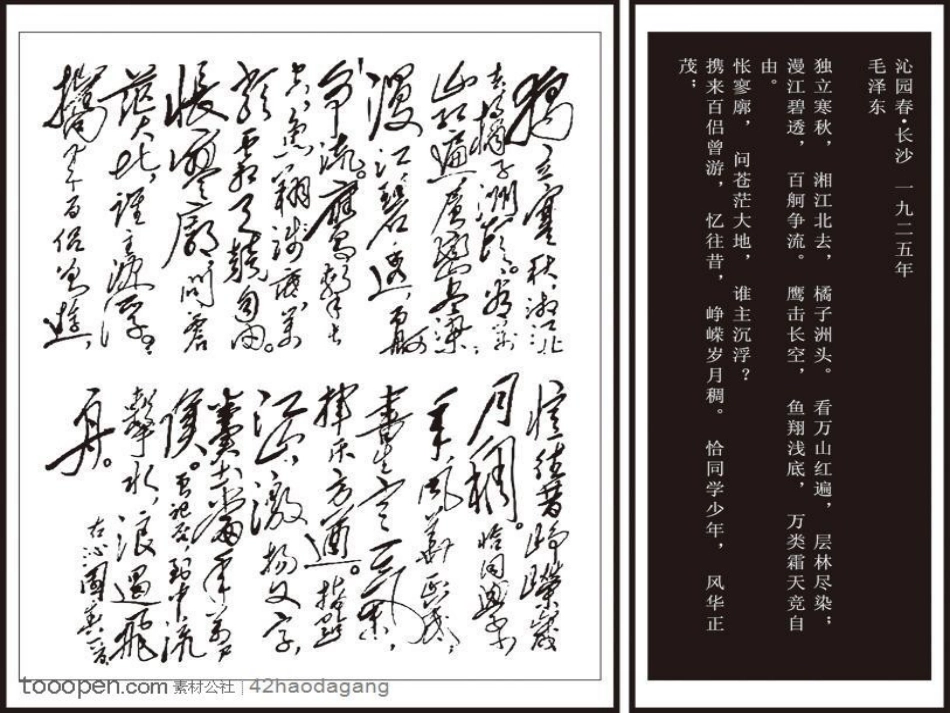 沁园春·长沙 一九二五年
毛泽东
独立寒秋， 湘江北去， 橘子洲头。 看万山红遍， 层林尽染；
漫江碧透， 百舸争流。 鹰击长空， 鱼翔浅底， 万类霜天竞自
由。
怅寥廓， 问苍茫大地， 谁主沉浮？
携来百侣曾游， 忆往昔， 峥嵘岁月稠。 恰同学少年， 风华正
茂；
獨立寒秋，湘江北
去，橘子洲頭。看萬
山紅遍，層巒盡染
漫江碧透，百舸
爭流。鷹擊長
空，魚翔淺底，萬
類霜天競自由。
悵寥廓，問蒼
茫大地，誰主沉浮？
攜來百侶曾遊，
憶往昔，崢嶸歲
月稠。恰同學少
年，風華正茂，
書生意氣，
揮斥方遒。指點
江山，激揚文字，
糞土當年萬戶
侯。曾記否，到中流
擊水，浪遏飛
舟。
右沁園春一首
tooopen.com 素材公社 | 42haodagang